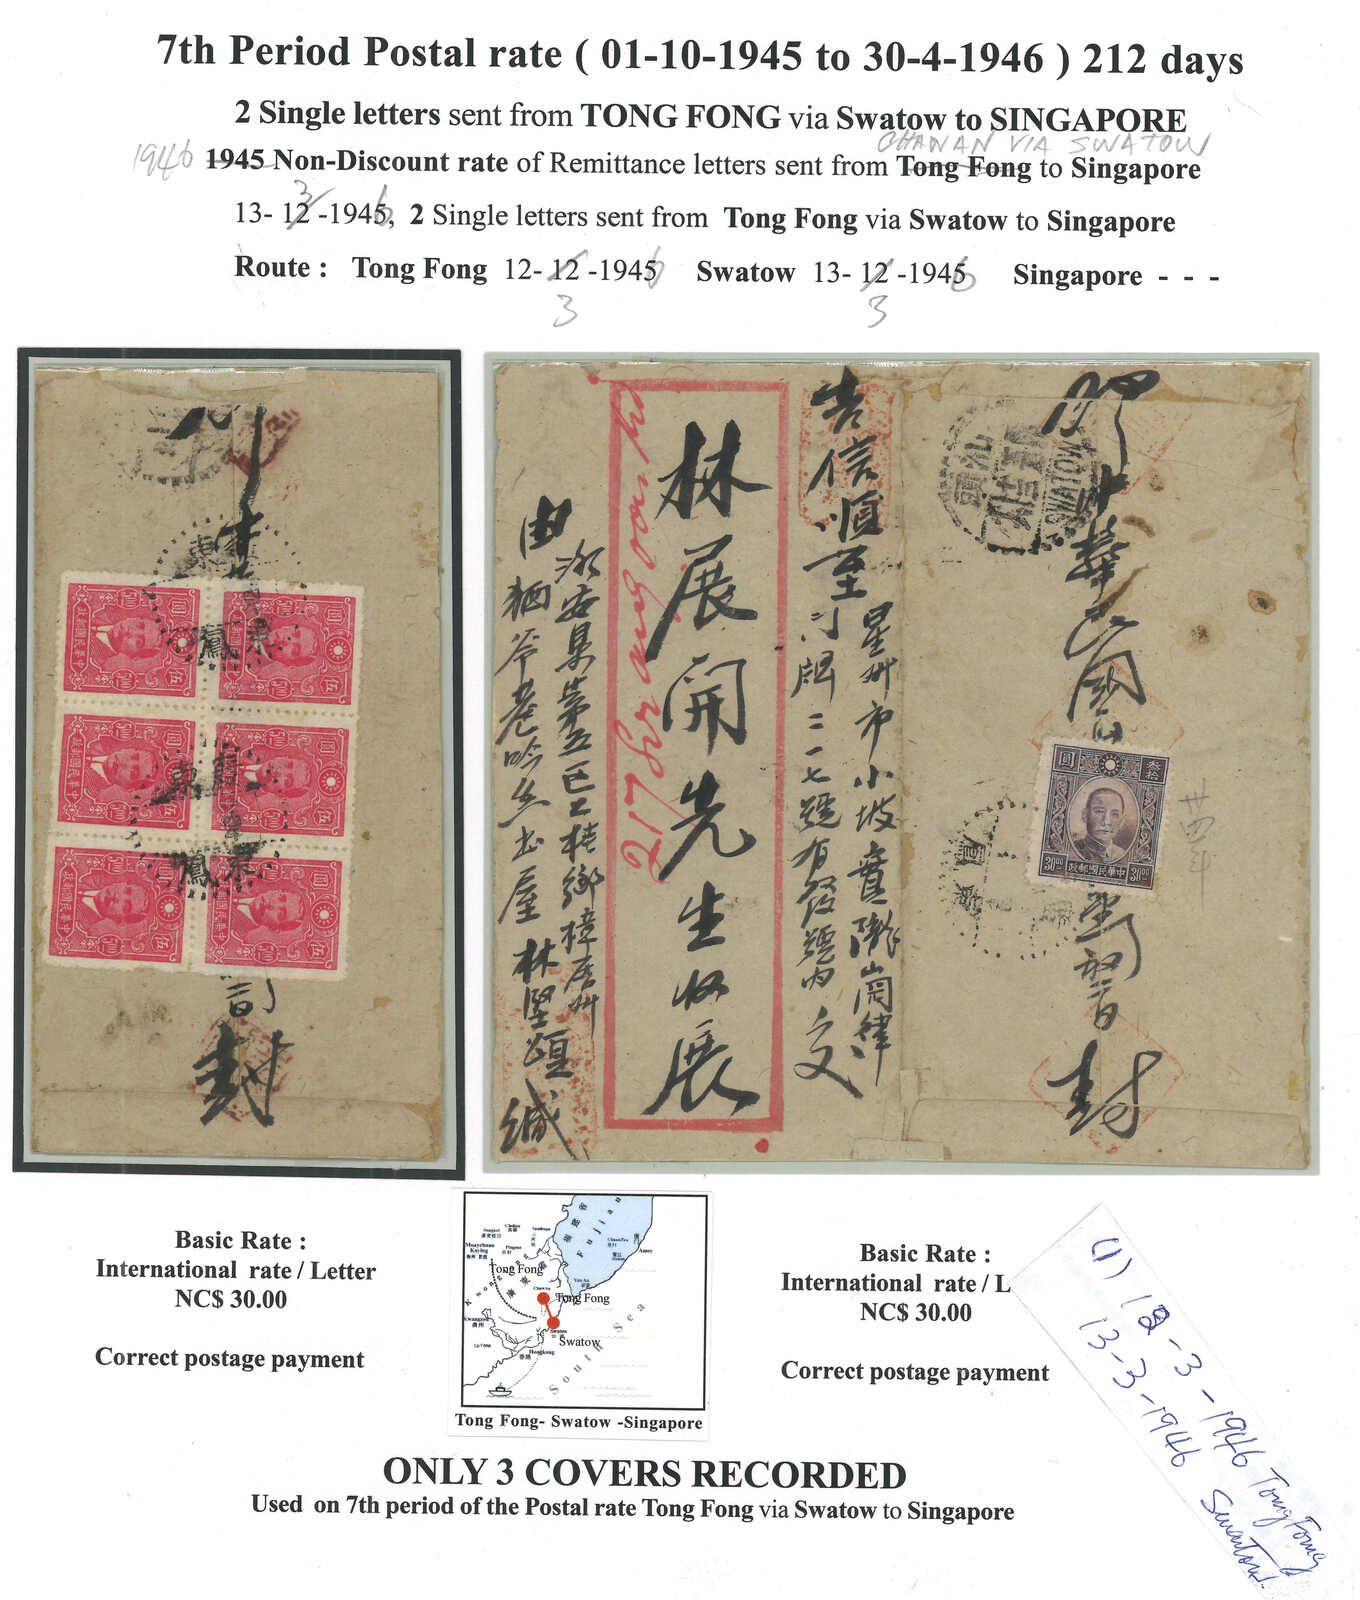 7th Period Postal rate ( 01-10-1945 to 30-4-1946 ) 212 days
2 Single letters sent from TONG FONG via Swatow to SINGAPORE
CHAWAN VIA SWATOW
1946 1945 Non-Discount rate of Remittance letters sent from Tong Fong to Singapore
13- 12 -1945, 2 Single letters sent from Tong Fong via Swatow to Singapore
3 6
Route : Tong Fong 12- 12 -1945 Swatow 13- 12 -1945 Singapore - - -
3 6 3 6
封
東鳳
東鳳
圓 伍
中華民國郵政
吉信順至
星州市小坡
門牌二一七號有發號內交
林展開先生收展
217
由
潮安县第五区上
林堅
緘
SWATOW
封
圓 叁拾
30.00 中華民國郵政 30.00
卅四年
Basic Rate :
International rate / Letter
NC$ 30.00
Correct postage payment
Fujian
Amoy
Tong Fong
Tong Fong
Swatow
Swatow
Hongkong
香港
South Sea
Tong Fong- Swatow -Singapore
Basic Rate :
International rate / L
NC$ 30.00
Correct postage payment
(1) 12-3-1946 Tong Fong
13-3-1946 Swatow.
ONLY 3 COVERS RECORDED
Used on 7th period of the Postal rate Tong Fong via Swatow to Singapore